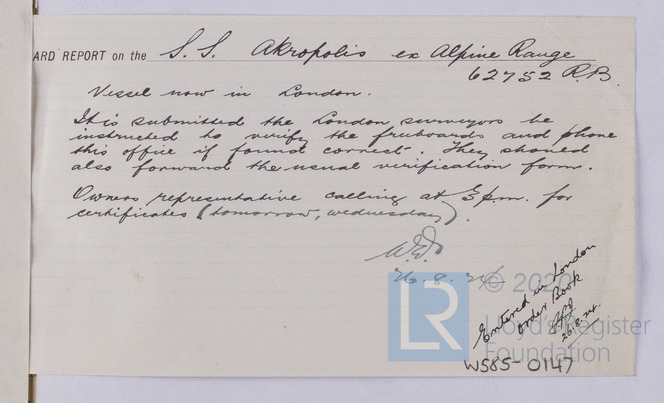 ARD REPORT on the S.S. Akropolis ex Alpine Range
62752 R.B.
Vessel now in London.
It is submitted the London surveyors be
instructed to verify the freeboards and phone
this office if found correct. They should
also forward the usual verification form.
Owners representative calling at 3 p.m. for
certificates (tomorrow, wednesday).
26.8.24
Entered in London
order Book
26.8.24.
© 2020
LR
Lloyd's Register
Foundation
W585-0147